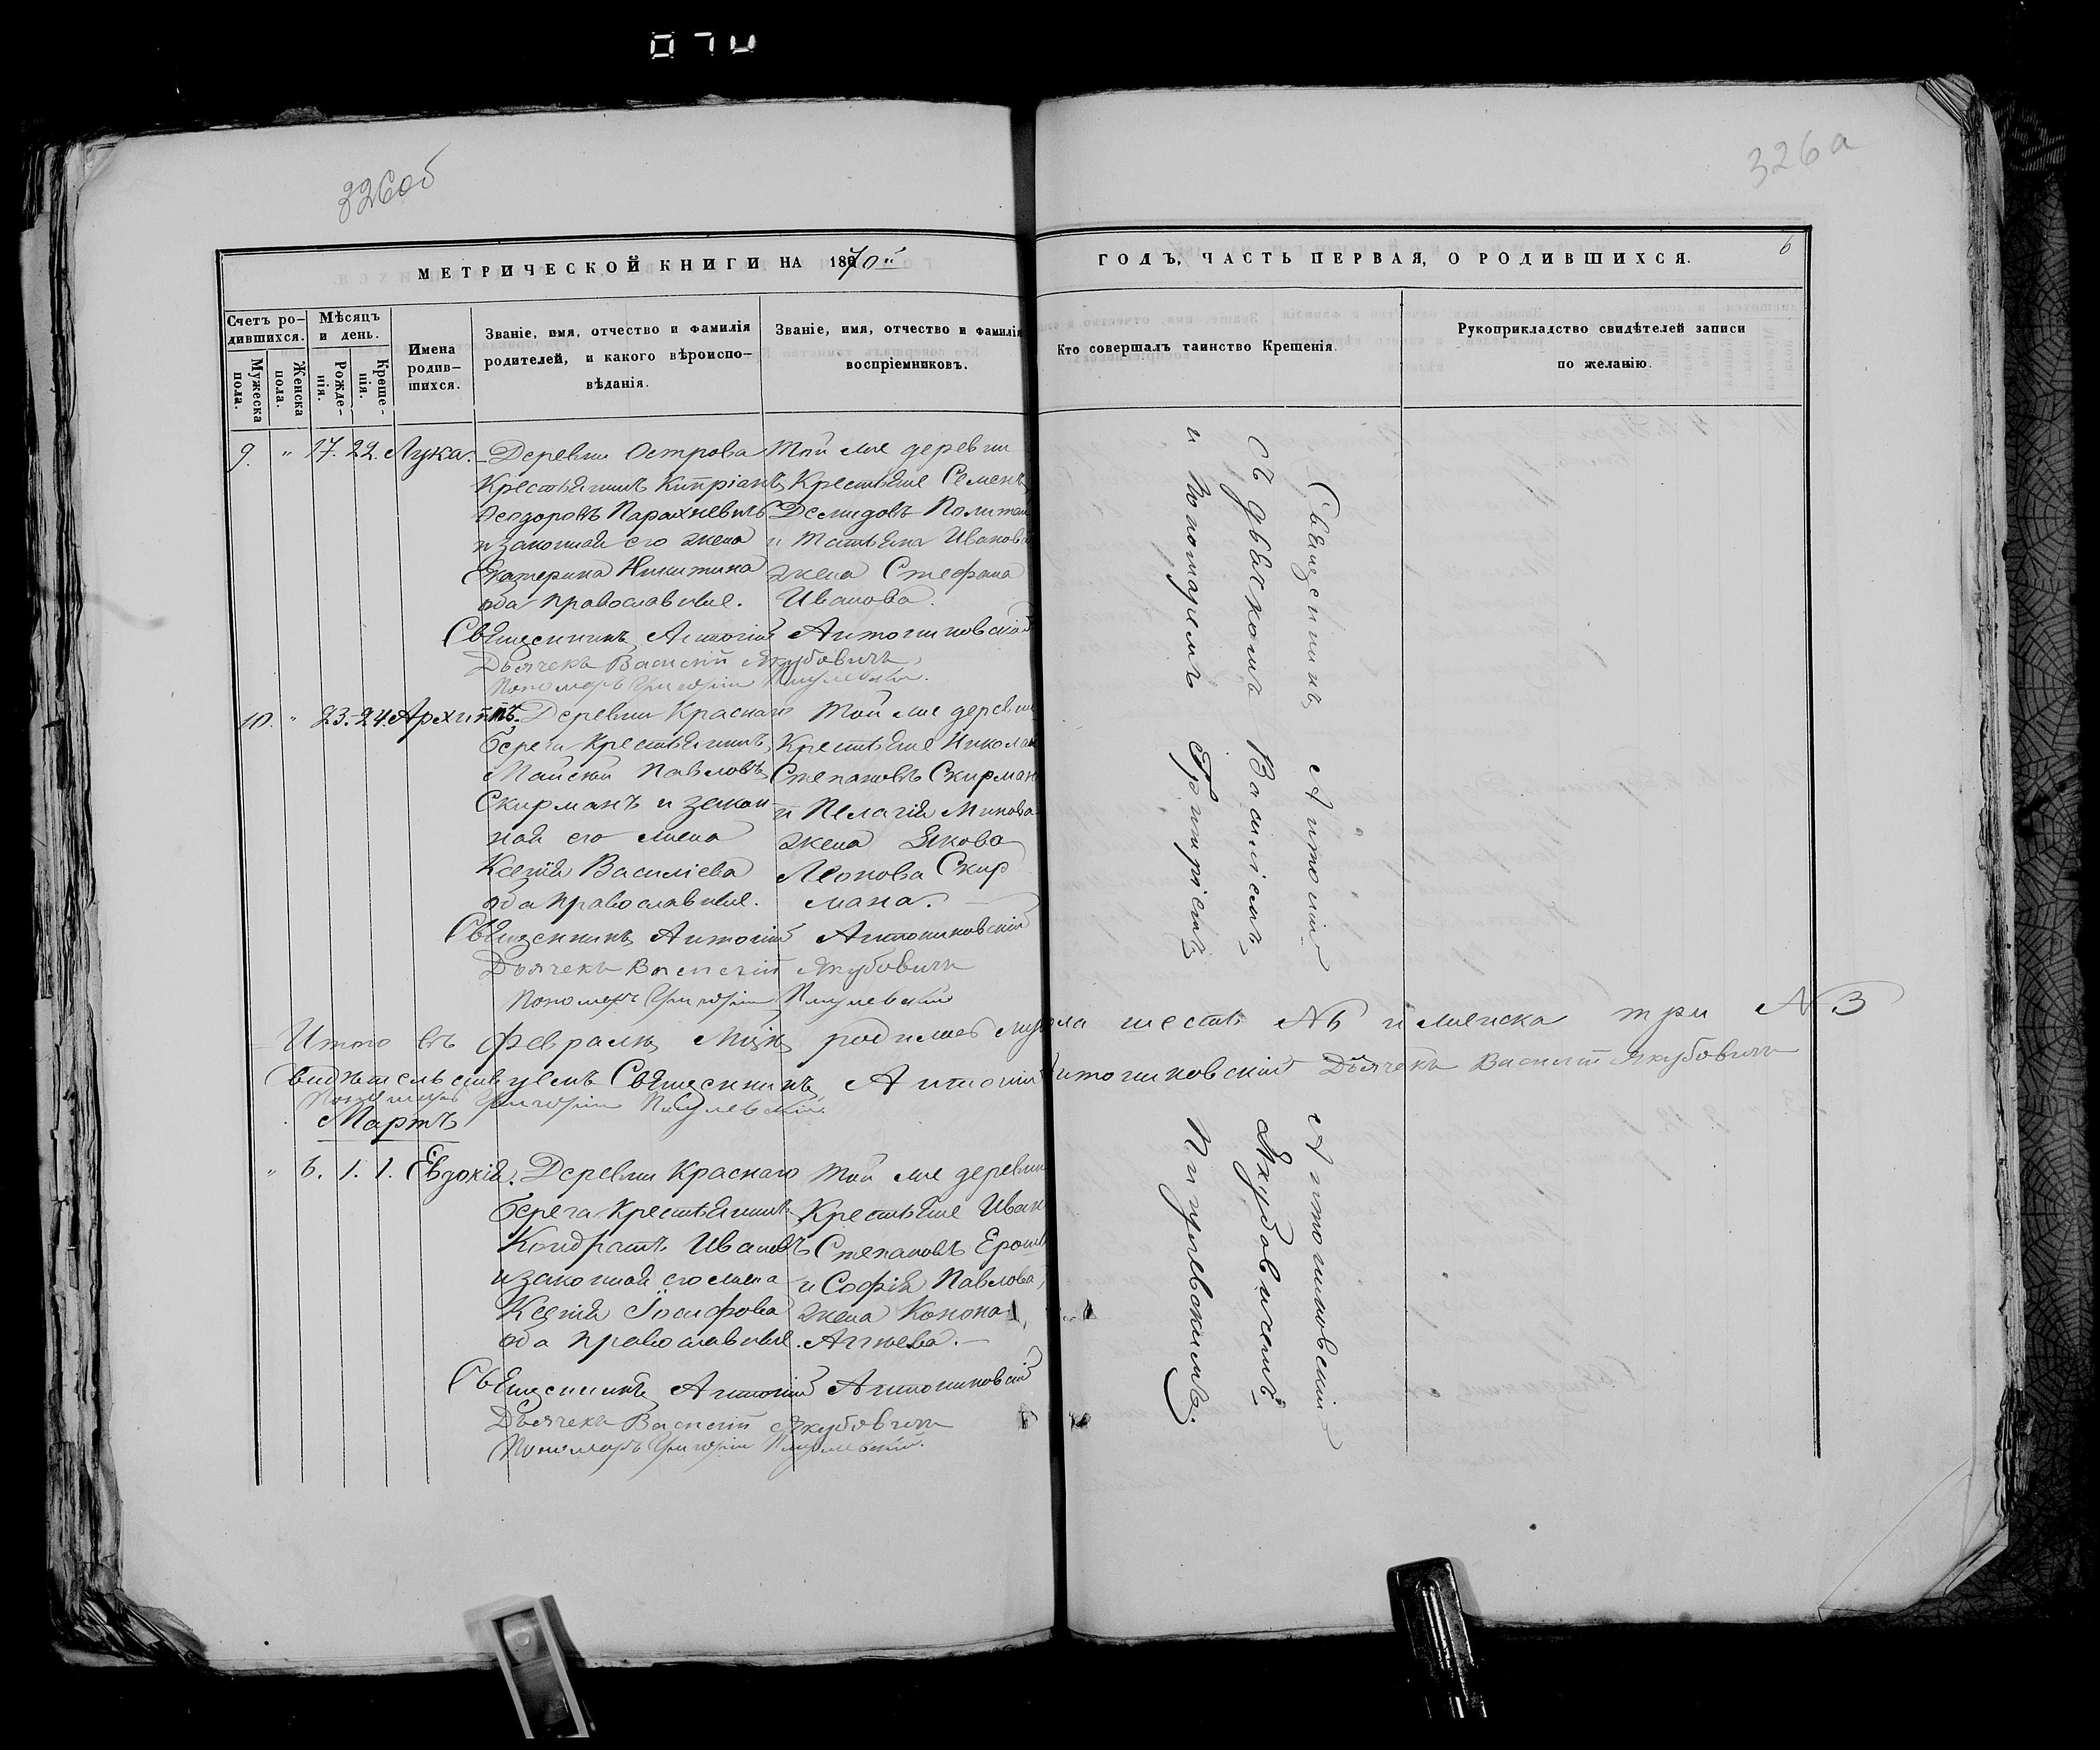 326об
326а
6
МЕТРИЧЕСКОЙ КНИГИ НА 1870й
ГОДЪ, ЧАСТЬ ПЕРВАЯ, О РОДИВШИХСЯ.
Счетъ ро-
дившихся.
Мужеска
пола.
Женска
пола.
Мѣсяцъ
и день.
Рожде-
нія.
Креще-
нія.
Имена
родив-
шихся.
Званіе, имя, отчество и фамилія
родителей, и какого вѣроиспо-
вѣданія.
Званіе, имя, отчество и фамилія
воспріемниковъ.
Кто совершалъ таинство Крещенія.
Рукоприкладство свидѣтелей записи
по желанію.
9. " 17. 22. Лука.
Деревни Острова
Крестьянинъ Кипріанъ
Ѳеодоровъ Парахневичъ
и законная его жена
Екатерина Никитина
оба православные.
Той же деревни
Крестьяне Семенъ
Демидовъ
и Татьяна Иванова
жена Стефана
Иванова.
Священникъ Антоній Антониковскій
Дьячекъ Василій Якубовичъ
Пономарь Григорій
10. " 23. 24. Архиппъ.
Деревни Краснаго
берега Крестьянинъ
Павловъ
Скирманъ и закон
ная его жена
Ксенія Василіева
оба православные.
Той же деревни
Крестьяне Николай
Степановъ Скирман
и Пелагія Минова
жена Якова
Леонова Скир
мана.
Священникъ Антоній Антониковскій
Дьячекъ Василій Якубовичъ
Пономарь Григорій
Итого въ Февралѣ мцѣ родилось муж. пола шесть №6 и женска три №3
видѣтельствуемъ Священникъ Антоній Антониковскій Дьячекъ Василій Якубовичъ
Пономарь Григорій
Мартъ
" 6. 1. 1. Евдокія.
Деревни Краснаго
берега Крестьянинъ
Кондратъ Ивановъ
и законная его жена
Ксенія Іосифова
оба православные.
Той же деревни
Крестьяне Иван
Степановъ
и Софія Павлова
жена Конона
Священникъ Антоній Антониковскій
Дьячекъ Василій Якубовичъ
Пономарь Григорій
Священникъ Антоній Антониковскій
съ дьячкомъ Василіемъ Якубовичемъ
и Пономаремъ Григоріемъ